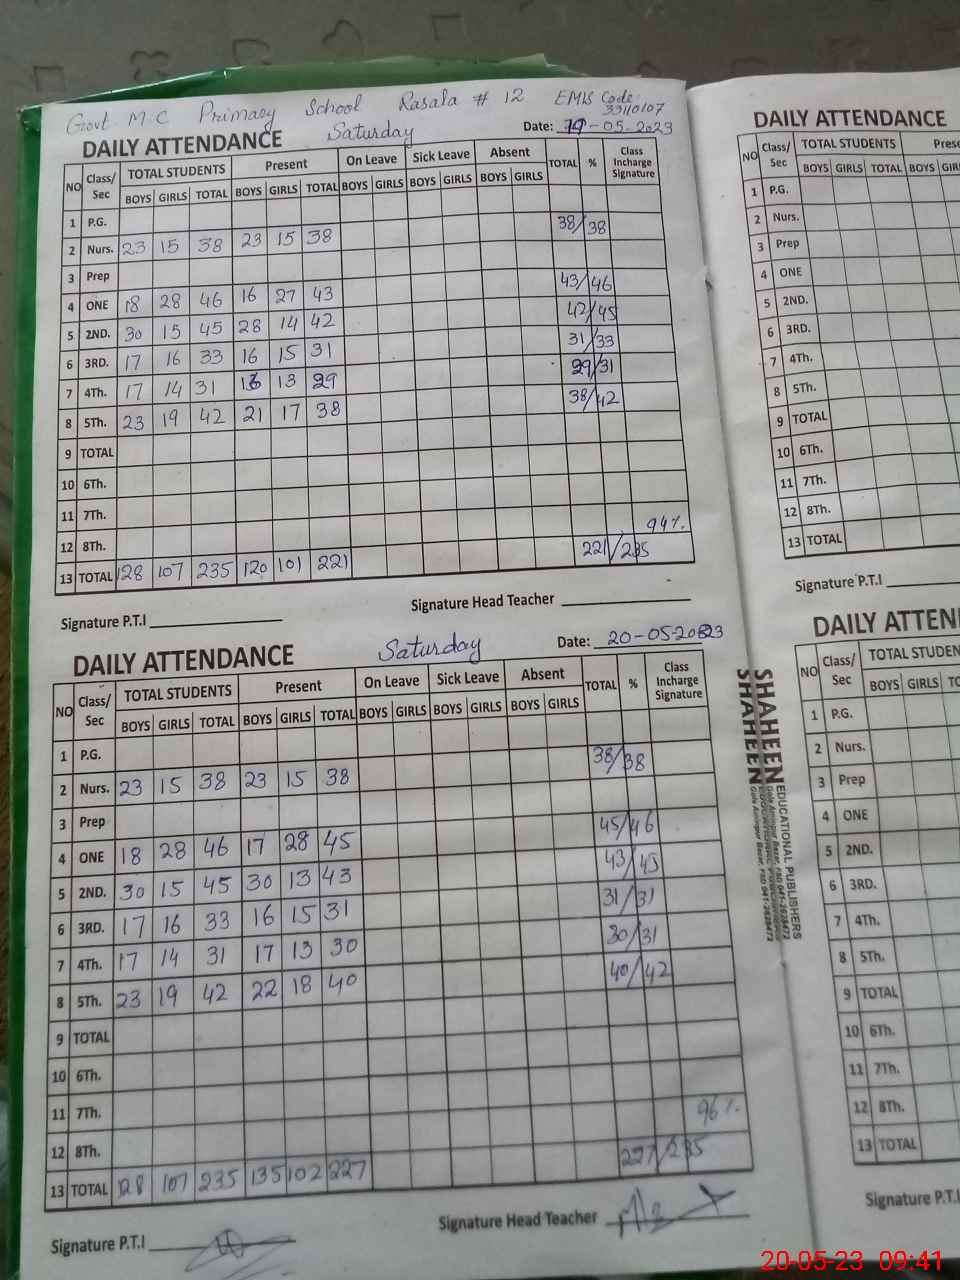 Govt. M.C Primary School Rasala # 12 EMIS Code 33110107
DAILY ATTENDANCE Saturday Date: 19-05-2023
NO Class/Sec TOTAL STUDENTS Present On Leave Sick Leave Absent TOTAL % Class Incharge Signature
BOYS GIRLS TOTAL BOYS GIRLS TOTAL BOYS GIRLS BOYS GIRLS BOYS GIRLS
1 P.G.
2 Nurs. 23 15 38 23 15 38 38/38
3 Prep
4 ONE 18 28 46 16 27 43 43/46
5 2ND. 30 15 45 28 14 42 42/45
6 3RD. 17 16 33 16 15 31 31/33
7 4Th. 17 14 31 16 13 29 29/31
8 5Th. 23 19 42 21 17 38 38/42
9 TOTAL
10 6Th.
11 7Th.
12 8Th. 94%.
13 TOTAL 128 107 235 120 101 221 221/235
Signature P.T.I Signature Head Teacher
DAILY ATTENDANCE Saturday Date: 20-05-2023
NO Class/Sec TOTAL STUDENTS Present On Leave Sick Leave Absent TOTAL % Class Incharge Signature
BOYS GIRLS TOTAL BOYS GIRLS TOTAL BOYS GIRLS BOYS GIRLS BOYS GIRLS
1 P.G.
2 Nurs. 23 15 38 23 15 38 38/38
3 Prep
4 ONE 18 28 46 17 28 45 45/46
5 2ND. 30 15 45 30 13 43 43/45
6 3RD. 17 16 33 16 15 31 31/31
7 4Th. 17 14 31 17 13 30 30/31
8 5Th. 23 19 42 22 18 40 40/42
9 TOTAL
10 6Th.
11 7Th. 96%.
12 8Th.
13 TOTAL 128 107 235 135 102 227 227/235
Signature P.T.I Signature Head Teacher
SHAHEEN EDUCATIONAL PUBLISHERS
SHAHEEN
DAILY ATTENDANCE
NO Class/Sec TOTAL STUDENTS
BOYS GIRLS TOTAL BOYS
1 P.G.
2 Nurs.
3 Prep
4 ONE
5 2ND.
6 3RD.
7 4Th.
8 5Th.
9 TOTAL
10 6Th.
11 7Th.
12 8Th.
13 TOTAL
Signature P.T.I
DAILY ATTEN
NO Class/Sec TOTAL STUDEN
BOYS GIRLS TOTAL
1 P.G.
2 Nurs.
3 Prep
4 ONE
5 2ND.
6 3RD.
7 4Th.
8 5Th.
9 TOTAL
10 6Th.
11 7Th.
12 8Th.
13 TOTAL
Signature P.T.I
20-05-23 09:41